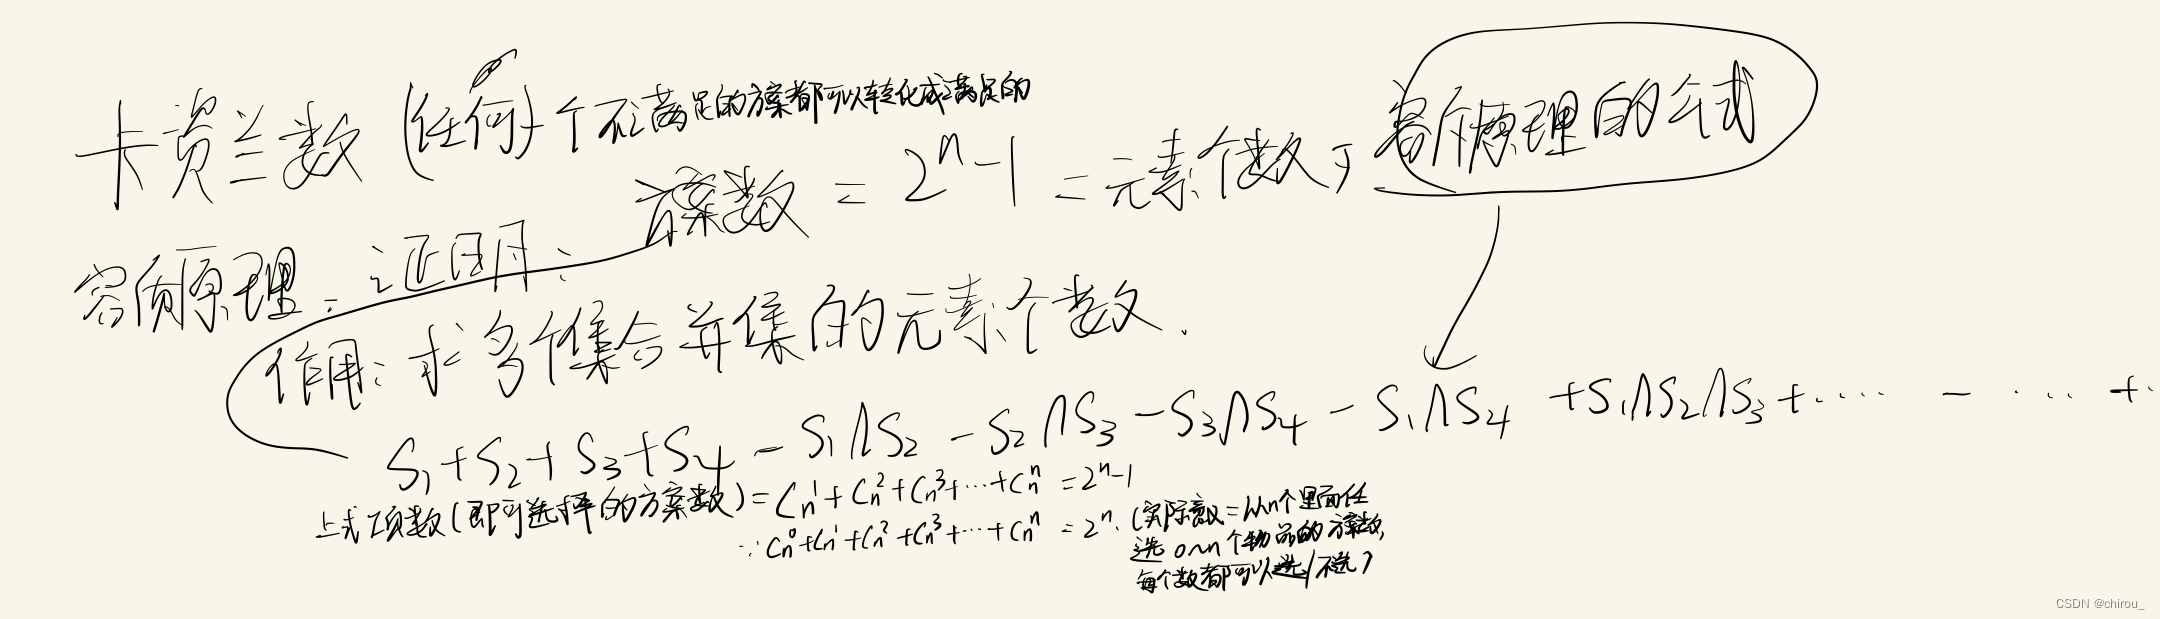 卡特兰数 (任何一个不满足的方案都可以转化成满足的)
方案数 = 2ⁿ-1 = 元素个数 于 容斥原理的公式
容斥原理: 证明:
作用: 求多个集合并集的元素个数.
S₁+S₂+S₃+S₄ - S₁∩S₂ - S₂∩S₃ - S₃∩S₄ - S₁∩S₄ + S₁∩S₂∩S₃ + ···· - ···· + ··
上式项数(即可选择的方案数) = Cₙ¹+Cₙ²+Cₙ³+···+Cₙⁿ = 2ⁿ-1
∵ Cₙ⁰+Cₙ¹+Cₙ²+Cₙ³+···+Cₙⁿ = 2ⁿ. (实际意义=从n个里面任
选 0~n 个物品的方案数,
每个数都可以选/不选)
CSDN @chirou_